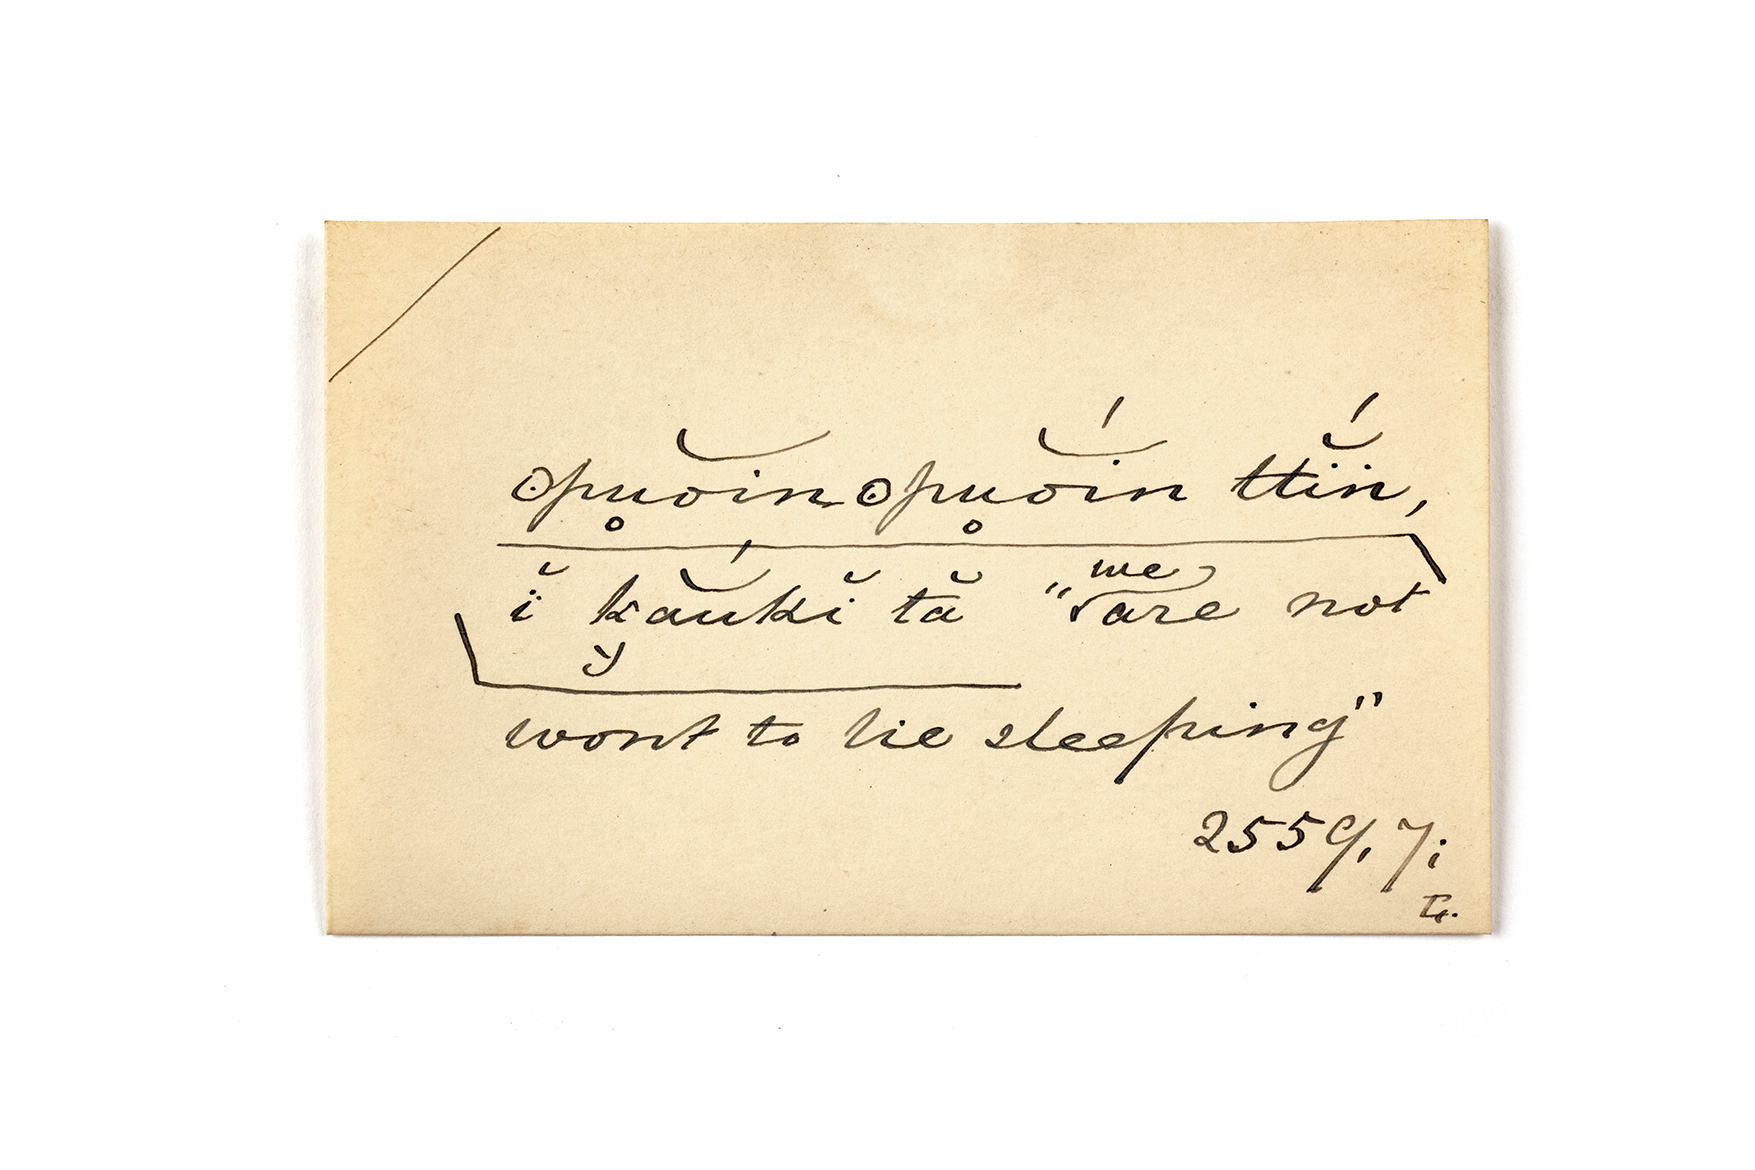 ꙩpu̥ŏin ꙩpu̥ŏ́in ttĭ́in,
ĭ kắukĭ tă "we are not
wont to lie sleeping"
2559, 7;